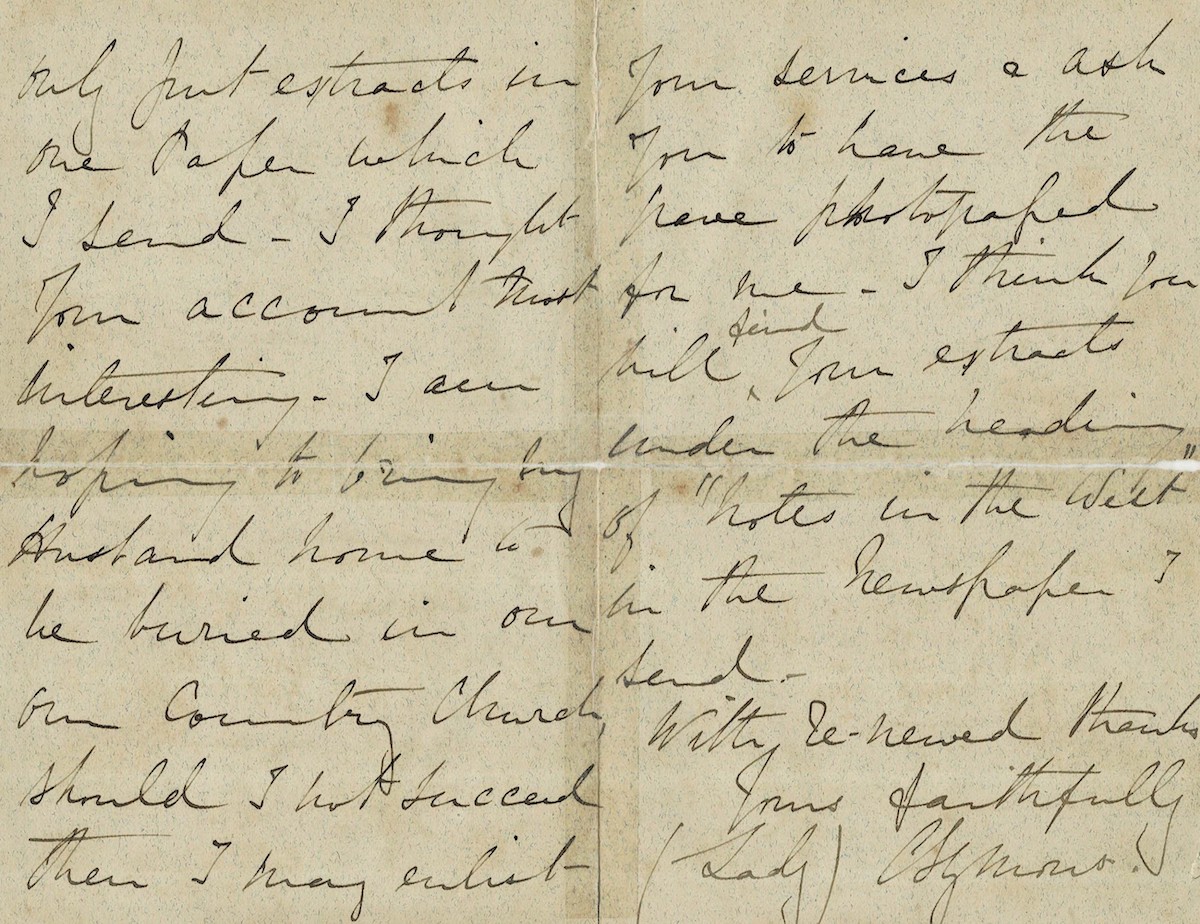 only put extracts in
one Paper which
I send - I thought
your account most
interesting - I am
hoping to bring my
Husband home to
be buried in our
own Country Church,
should I not succeed
then I may enlist
your services & ask
you to have the
grave photopaped
for me - I think you
will send your extracts
under the heading
of "Notes in the West"
in the Newspaper I
send -
With re-newed thanks
Yours faithfully
(Lady) C Symons.